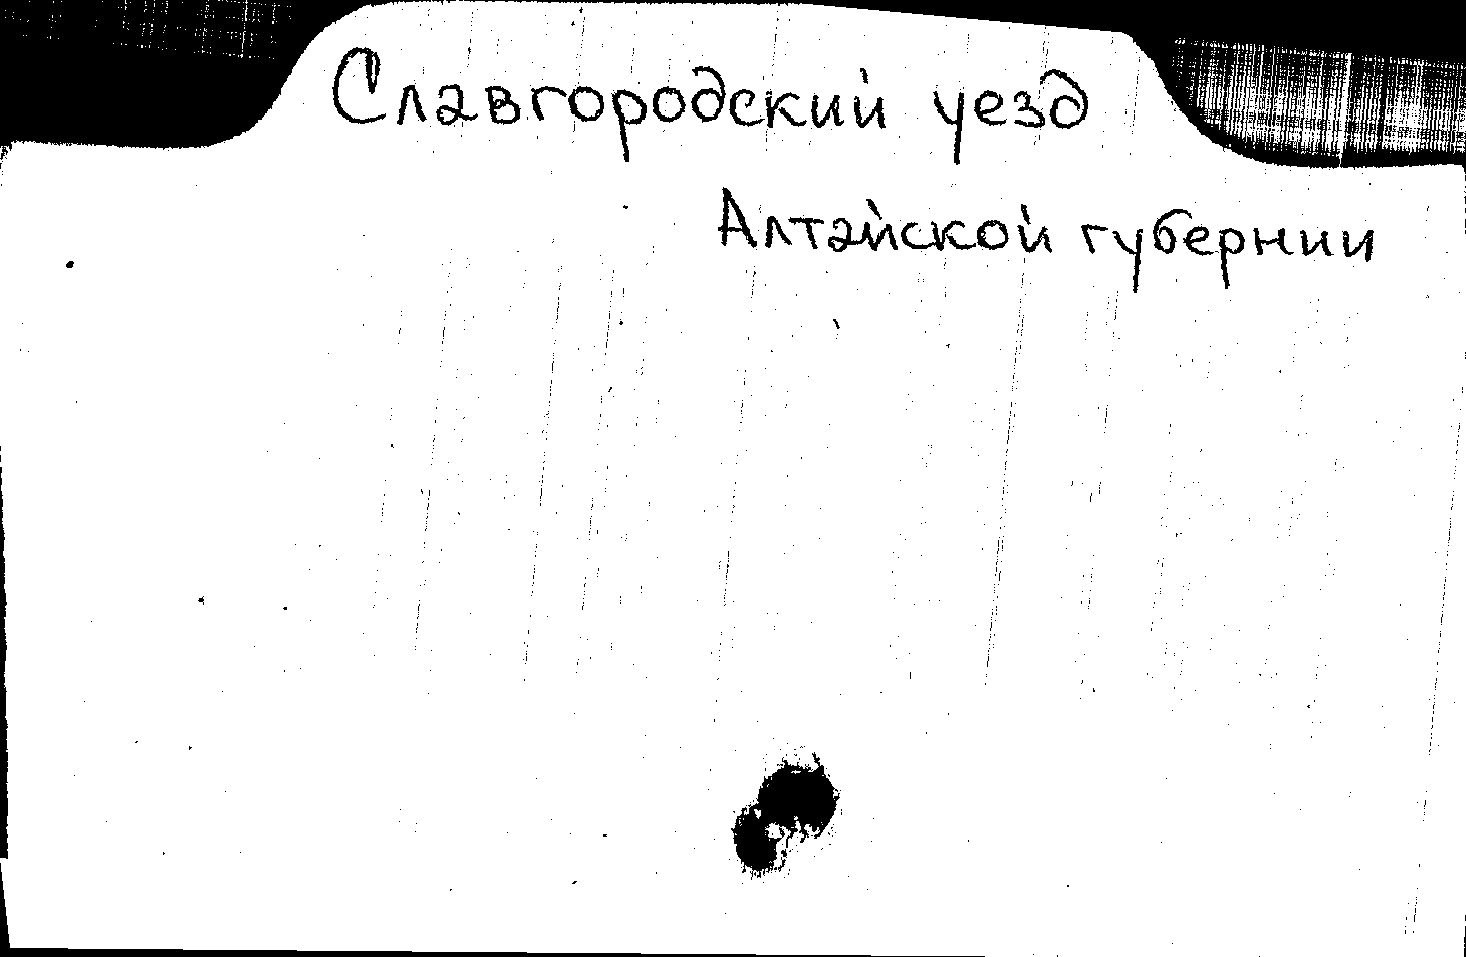 Славгородский уезд
Алтайской губернии